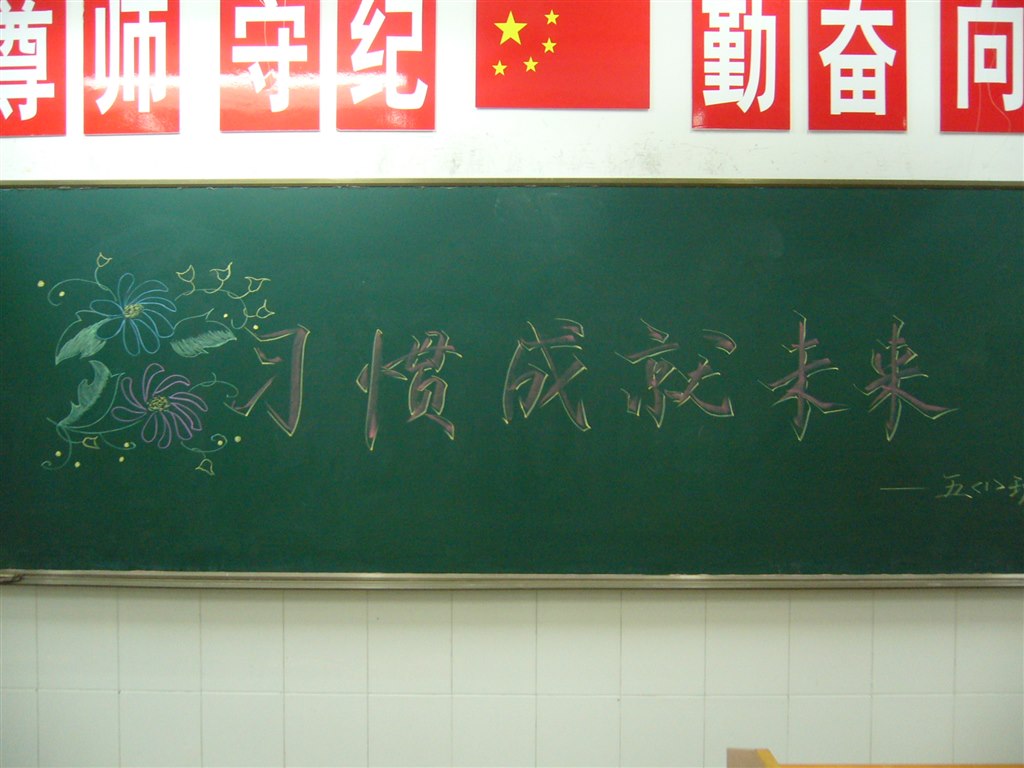 尊师守纪 勤奋向
习惯成就未来
——五<1>班